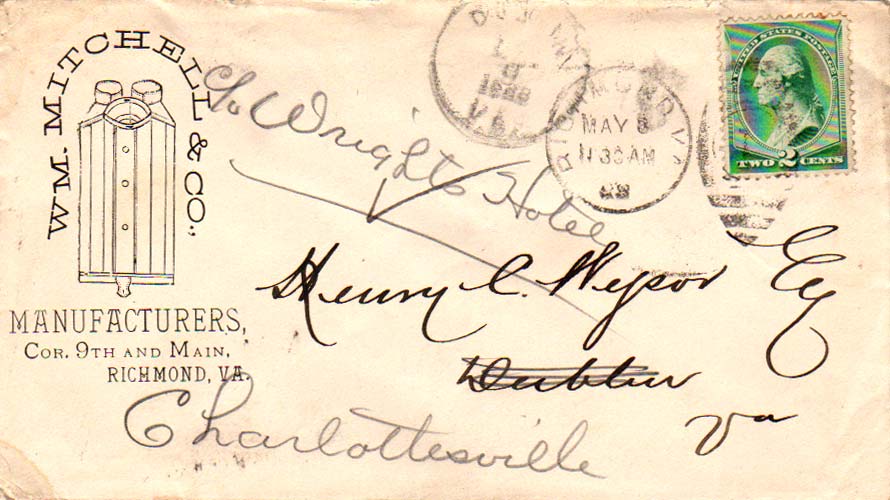 WM. MITCHELL & CO.,
MANUFACTURERS,
COR. 9TH AND MAIN,
RICHMOND, VA.
1888
VA.
RICHMOND VA
MAY 8
1130AM
88
UNITED STATES POSTAGE
TWO 2 CENTS
c/o Wright's Hotel
Henry C. Wysor Esq
Dublin
Va
Charlottesville